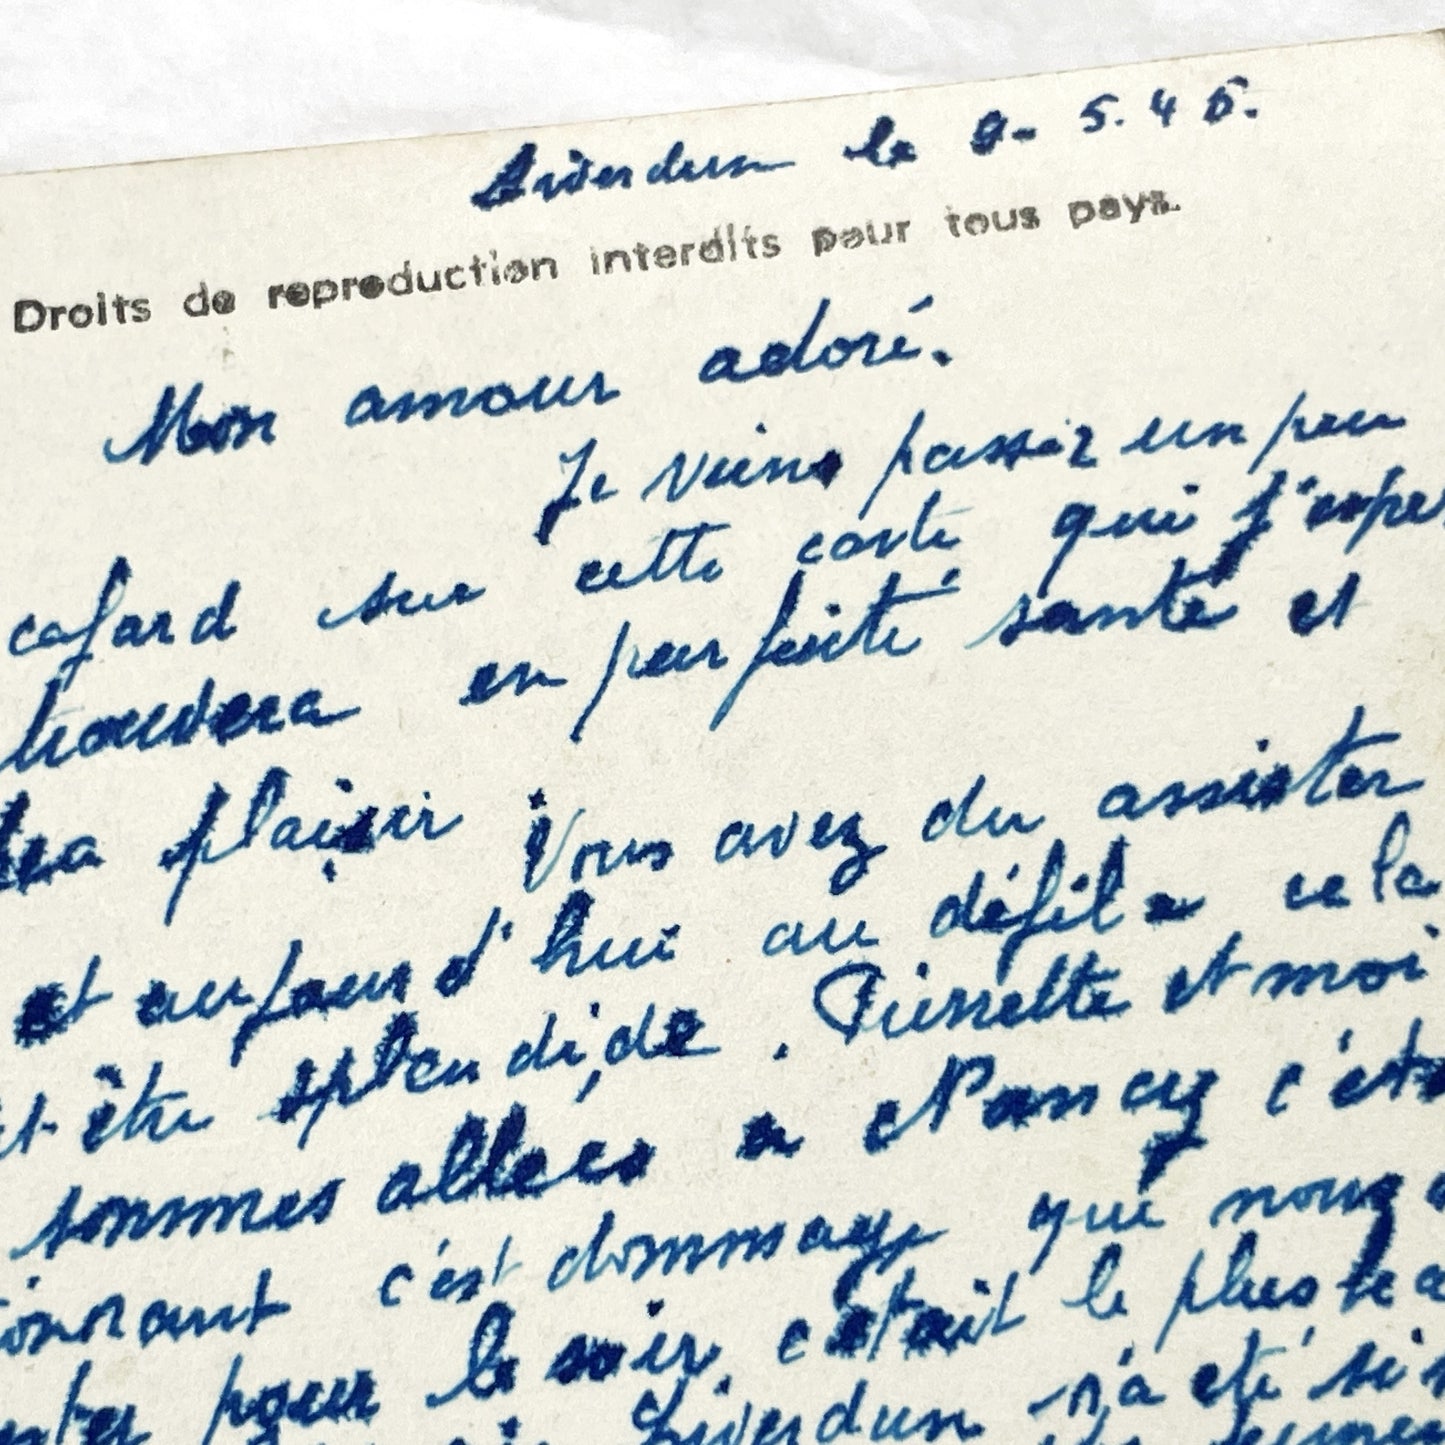 Liverdun le 9-5.45.
Droits de reproduction interdits pour tous pays.
Mon amour adoré.
Je veins passer un peu
cafard sur cette carte qui j'espe
trouvera en parfaite santé et
plaisir Vous avez du assister
et aujourd'hui au défile cela
être splendide. Pierrette et moi
sommes allées a Nancy c'éta
ionnant c'est dommage que nous
pour le soir, c'était le plus bea
Liverdun n'a été si